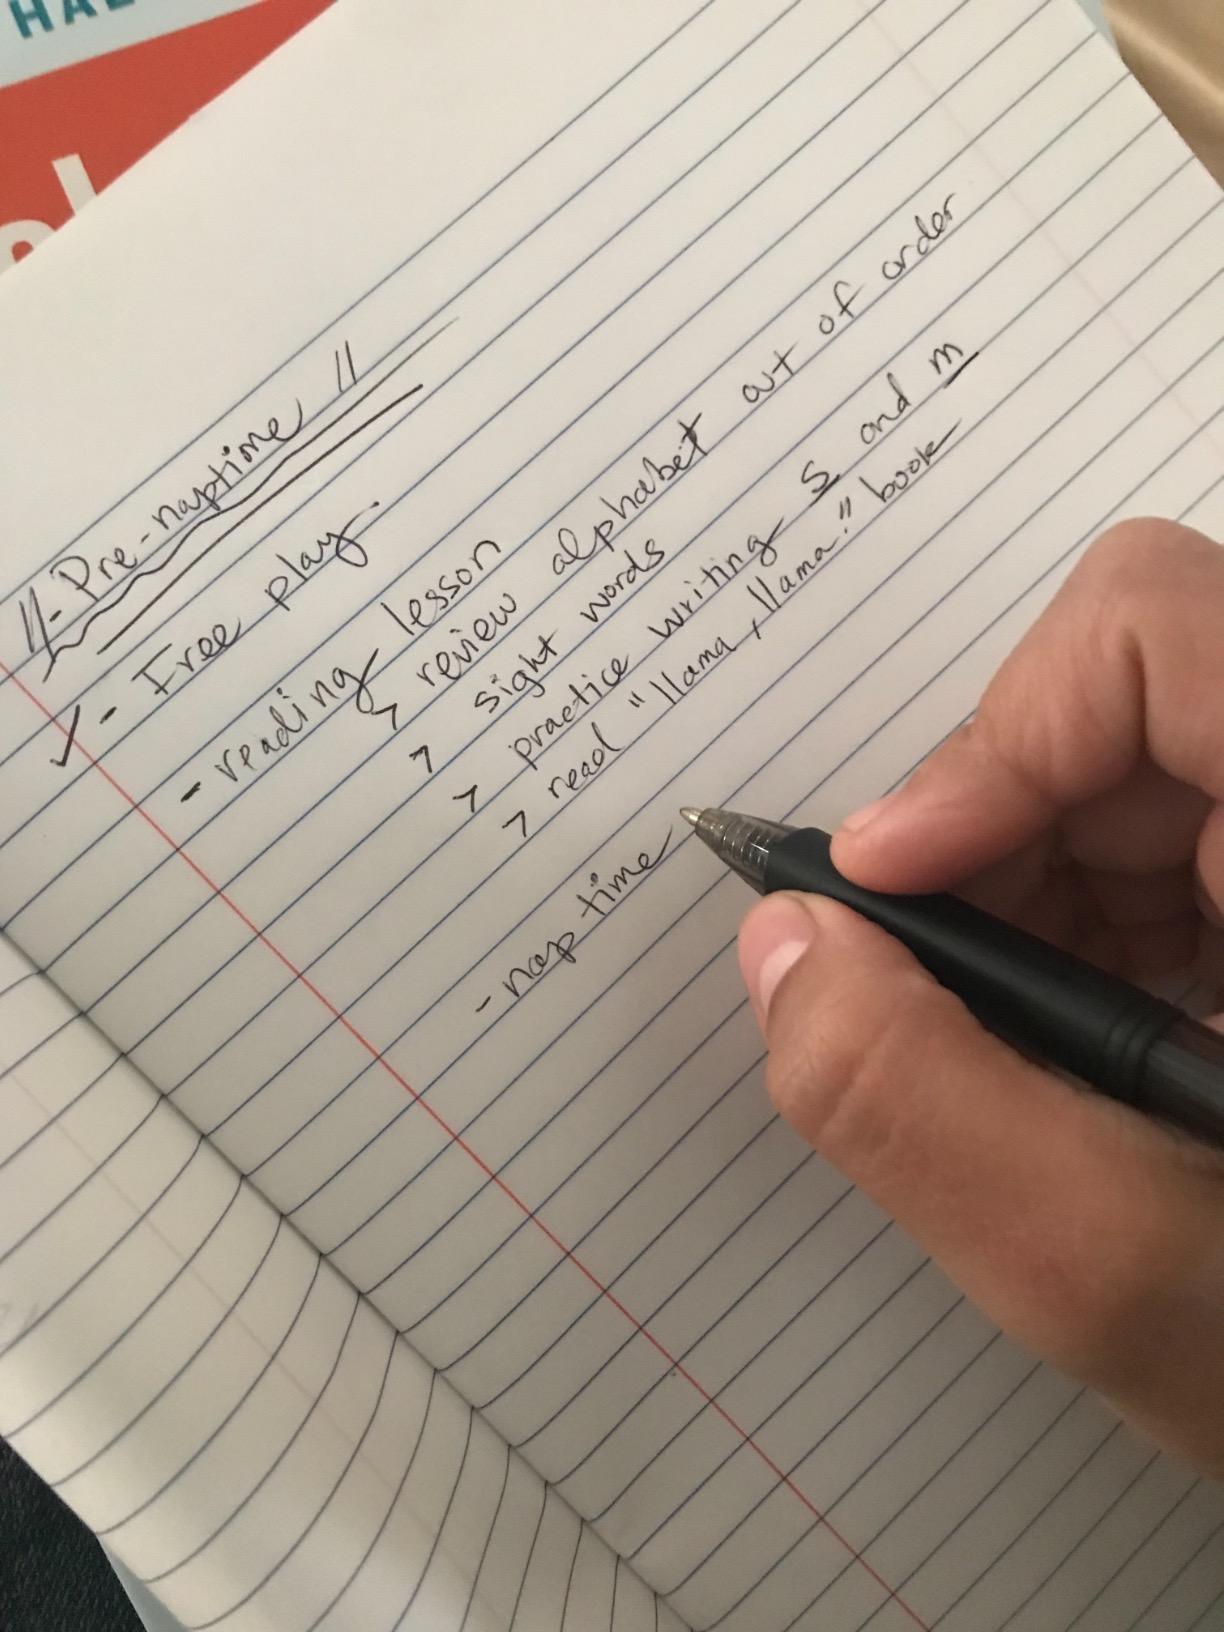 HAL
//-Pre-naptime //
✓ - Free play
- reading lesson
> review alphabet out of order
> sight words
> practice writing s and m
> read "llama, llama." book
- nap time